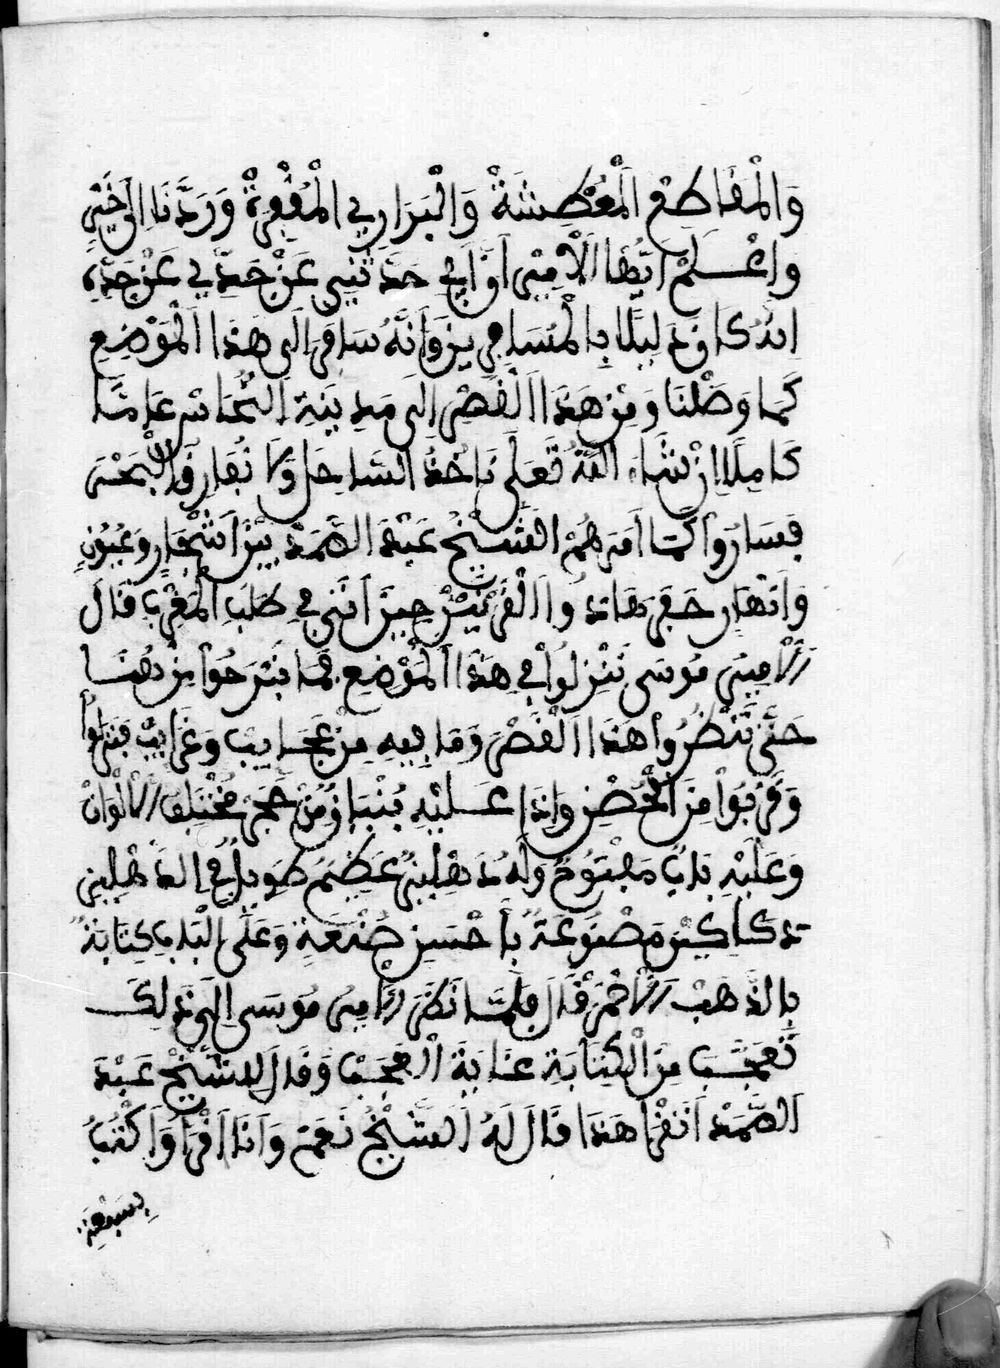 وَالْمَفَاطِعْ الْمُعْطِشَةْ وَالْبَرَارِي الْمُفْعِرَةْ وَرَدَّنَا إِلَى خَيْرٍ
واعْلَمْ أَيُّهَا الْأَمِير أَنَّ أَبِي حَدَّثَنِي عَنْ جَدِّي عَنْ جَدِّهِ
انهُ كان دَلِيلًا بِالْمُسَافِرِينَ وَأَنَّهُ سَافَرَ إِلَى هَذَا الْمَوْضِعِ
كَمَا وَصَلْنَا وَمِنْ هَذَا الْقَصْرِ إِلَى مَدِينَةِ النُّحَاسِ عَامًا
كَامِلًا إِنْ شَاءَ اللَّهُ تَعَلَى نَاخُذُ السَّاحِلَ وَلَا نُفَارِقُ الْبَحْرَ
فَسَارُوا كَمَا أَمَرَهُمْ الشَّيْخُ عَبْدَ الصَّمَدْ بَيْنَ أَشْجَارٍ وَعُيُونٍ
وَأَنْهَارٍ
الْأَمِيرُ مُوسَى نَنْزِلُوا فِي هَذَا الْمَوْضِعِ فَمَا نَبْرَحُوا مِنْ هُنَا
حَتَّى نَنْظُرُوا هَذَا الْقَصْرَ وَمَا فِيهِ مِنْ عَجَايِبَ وَغَرَايِبْ فَنَزَلُوا
وَقَرُبُوا مِنَ الْحُصْنِ وَإِذَا عَلَيْهِ بُنْيَانٌ مِنْ حَجَرٍ مُخْتَلِفَ الْأَلْوَانْ
وَعَلَيْهِ بَابٌ مَفْتُوحٌ وَلَهُ دَهْلِيزٌ عَظِيمٌ طَوِيلٌ فِي الدَّهْلِيزِ
دَكَاكِينَ مَصْنُوعَةٌ بِأَحْسَنِ صُنْعَةٍ وَعَلَى الْبَابِ كِتَابَةٌ
بِالذَّهَبْ الْأَحْمَرْ قَالَ فَلَمَّا نَظَرَ الْأَمِيرُ مُوسَى إِلَى ذَلِكَ
تَعَجَّبَ مِنَ الْكِتَابَةِ غَايَةَ الْعَجَبْ وَقَالَ لِلشَّيْخْ عَبْدَ
الصَّمَدْ أَتَقْرَأ هَذَا قَالَ لَهُ الشَّيْخُ نَعَمْ وَأَنَا أَقْرَأُ وَأَكْتُبُ